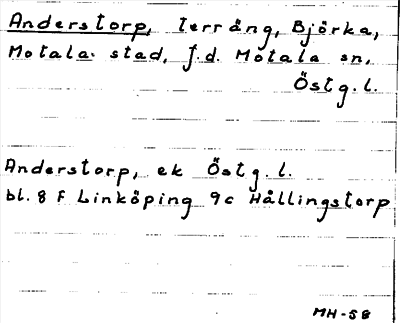 Anderstorp, terräng, Björka,
Motala stad, f.d. Motala sn,
Östg.l.
Anderstorp, ek Östg.l.
bl. 8 F Linköping 9c Hållingstorp
MH-58